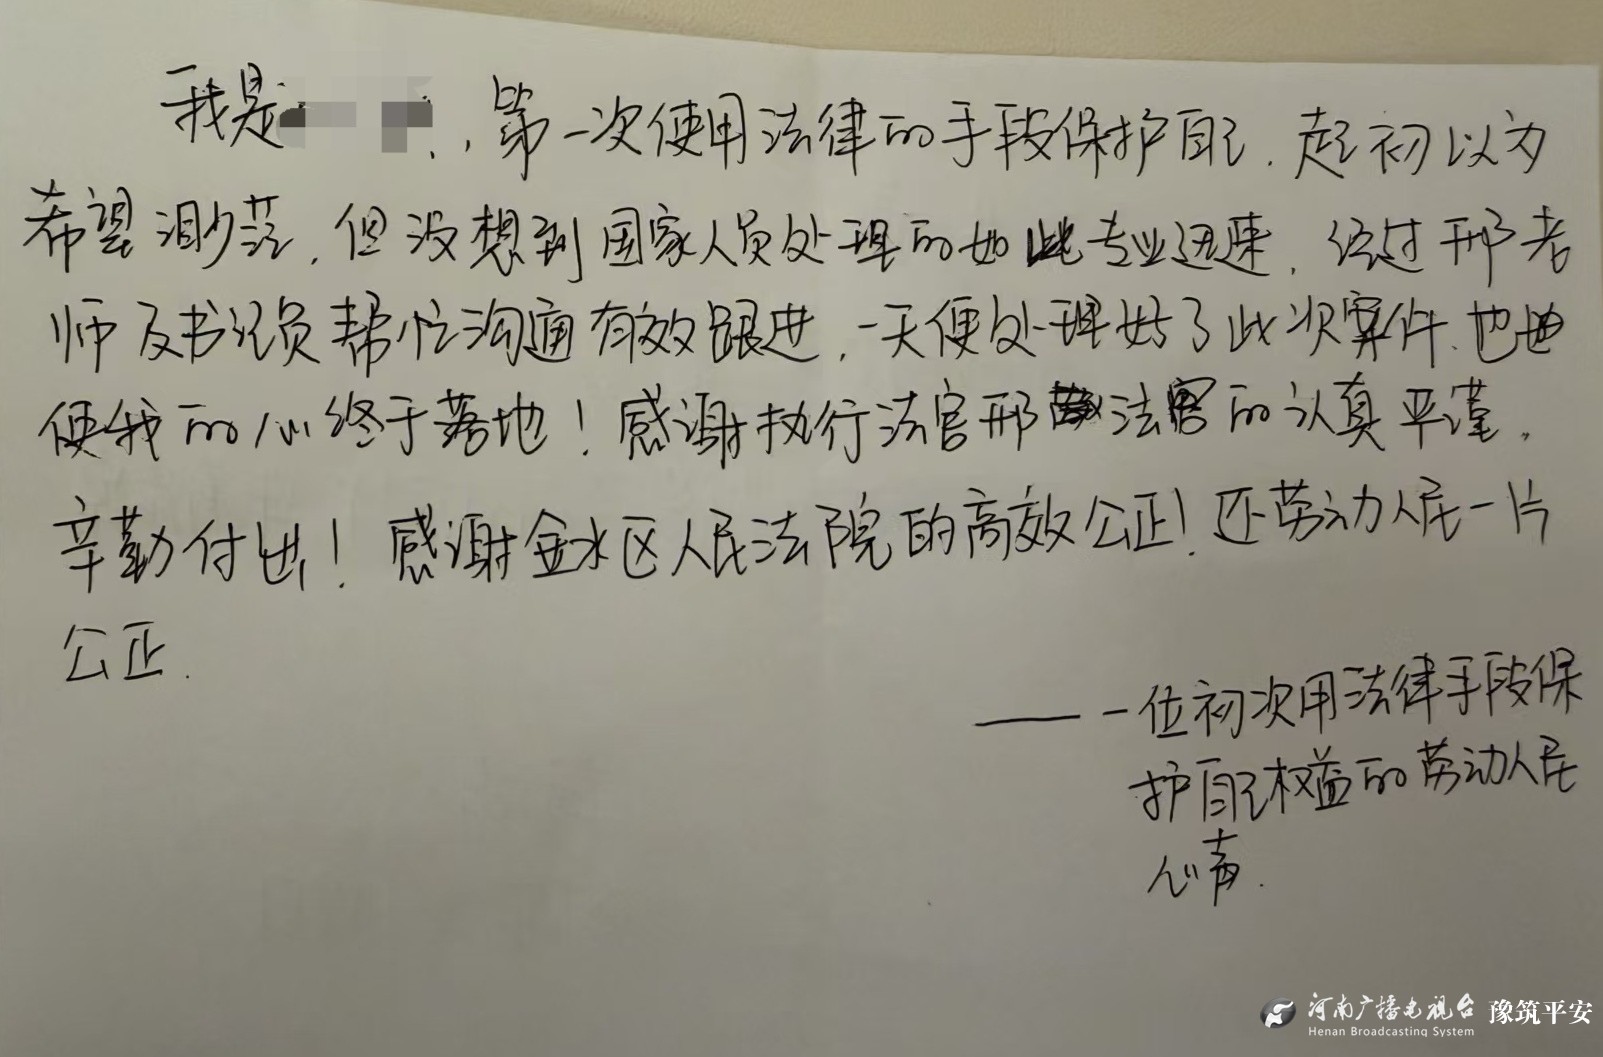 我是 ，第一次使用法律的手段保护自己．起初以为
希望渺茫，但没想到国家人员处理的如此专业迅速，经过邢老
师及书记员帮忙沟通有效跟进，一天便处理好了此次案件．也
便我的心终于落地！感谢执行法官邢 法官的认真严谨，
辛勤付出！感谢金水区人民法院的高效公正！还劳动人民一片
公正．
——一位初次用法律手段保
护自己权益的劳动人民
心声．
河南广播电视台 豫筑平安
Henan Broadcasting System